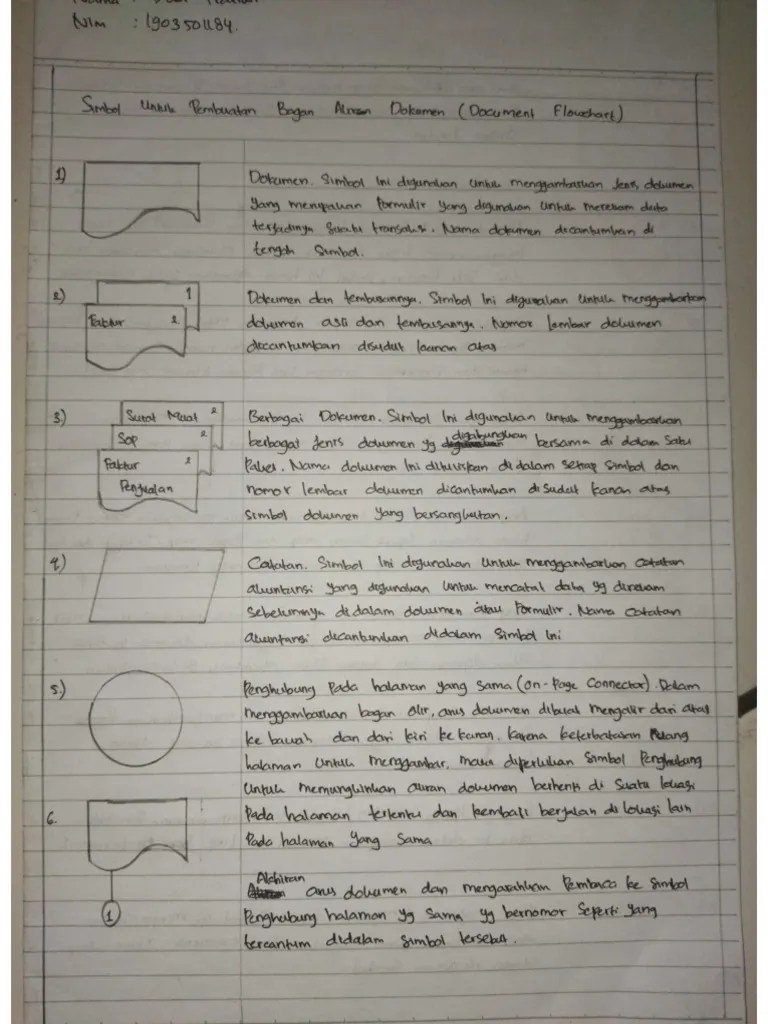 NIM : 1903501184.
Simbol Untuk Pembuatan Bagan Aliran Dokumen (Document Flowchart)
1) Dokumen. Simbol Ini digunakan Untuk menggambarkan Jenis dokumen
yang merupakan formulir yang digunakan Untuk merekam data
terjadinya suatu transaksi. Nama dokumen dicantumkan di
tengah Simbol.
2) 1
Faktur 2
Dokumen dan tembusannya. Simbol Ini digunakan Untuk menggambarkan
dokumen asli dan tembusannya. Nomor lembar dokumen
dicantumkan disudut kanan atas
3) Surat Muat 2
Sop 2
Faktur 2
Penjualan
Berbagai Dokumen. Simbol Ini digunakan Untuk menggambarkan
berbagai Jenis dokumen yg digabungkan bersama di dalam Satu
Paket. Nama dokumen Ini dituliskan didalam setiap Simbol dan
nomor lembar dokumen dicantumkan disudut kanan atas
simbol dokumen yang bersangkutan.
4) Catatan. Simbol Ini digunakan Untuk menggambarkan catatan
akuntansi yang digunakan Untuk mencatat data yg direkam
sebelumnya didalam dokumen atau formulir. Nama catatan
akuntansi dicantumkan didalam Simbol Ini
5.) Penghubung Pada halaman yang sama (On-Page Connector). Dalam
menggambarkan bagan alir, arus dokumen dibuat mengalir dari atas
ke bawah dan dari kiri ke kanan. Karena keterbatasan Ruang
halaman Untuk menggambar, maka diperlukan Simbol Penghubung
Untuk memungkinkan aliran dokumen berhenti di Suatu lokasi
Pada halaman tertentu dan kembali berjalan di lokasi lain
Pada halaman Yang Sama
6. 1
Akhiran arus dokumen dan mengarahkan Pembaca ke Simbol
Penghubung halaman yg sama yg bernomor Seperti yang
tercantum didalam simbol tersebut.